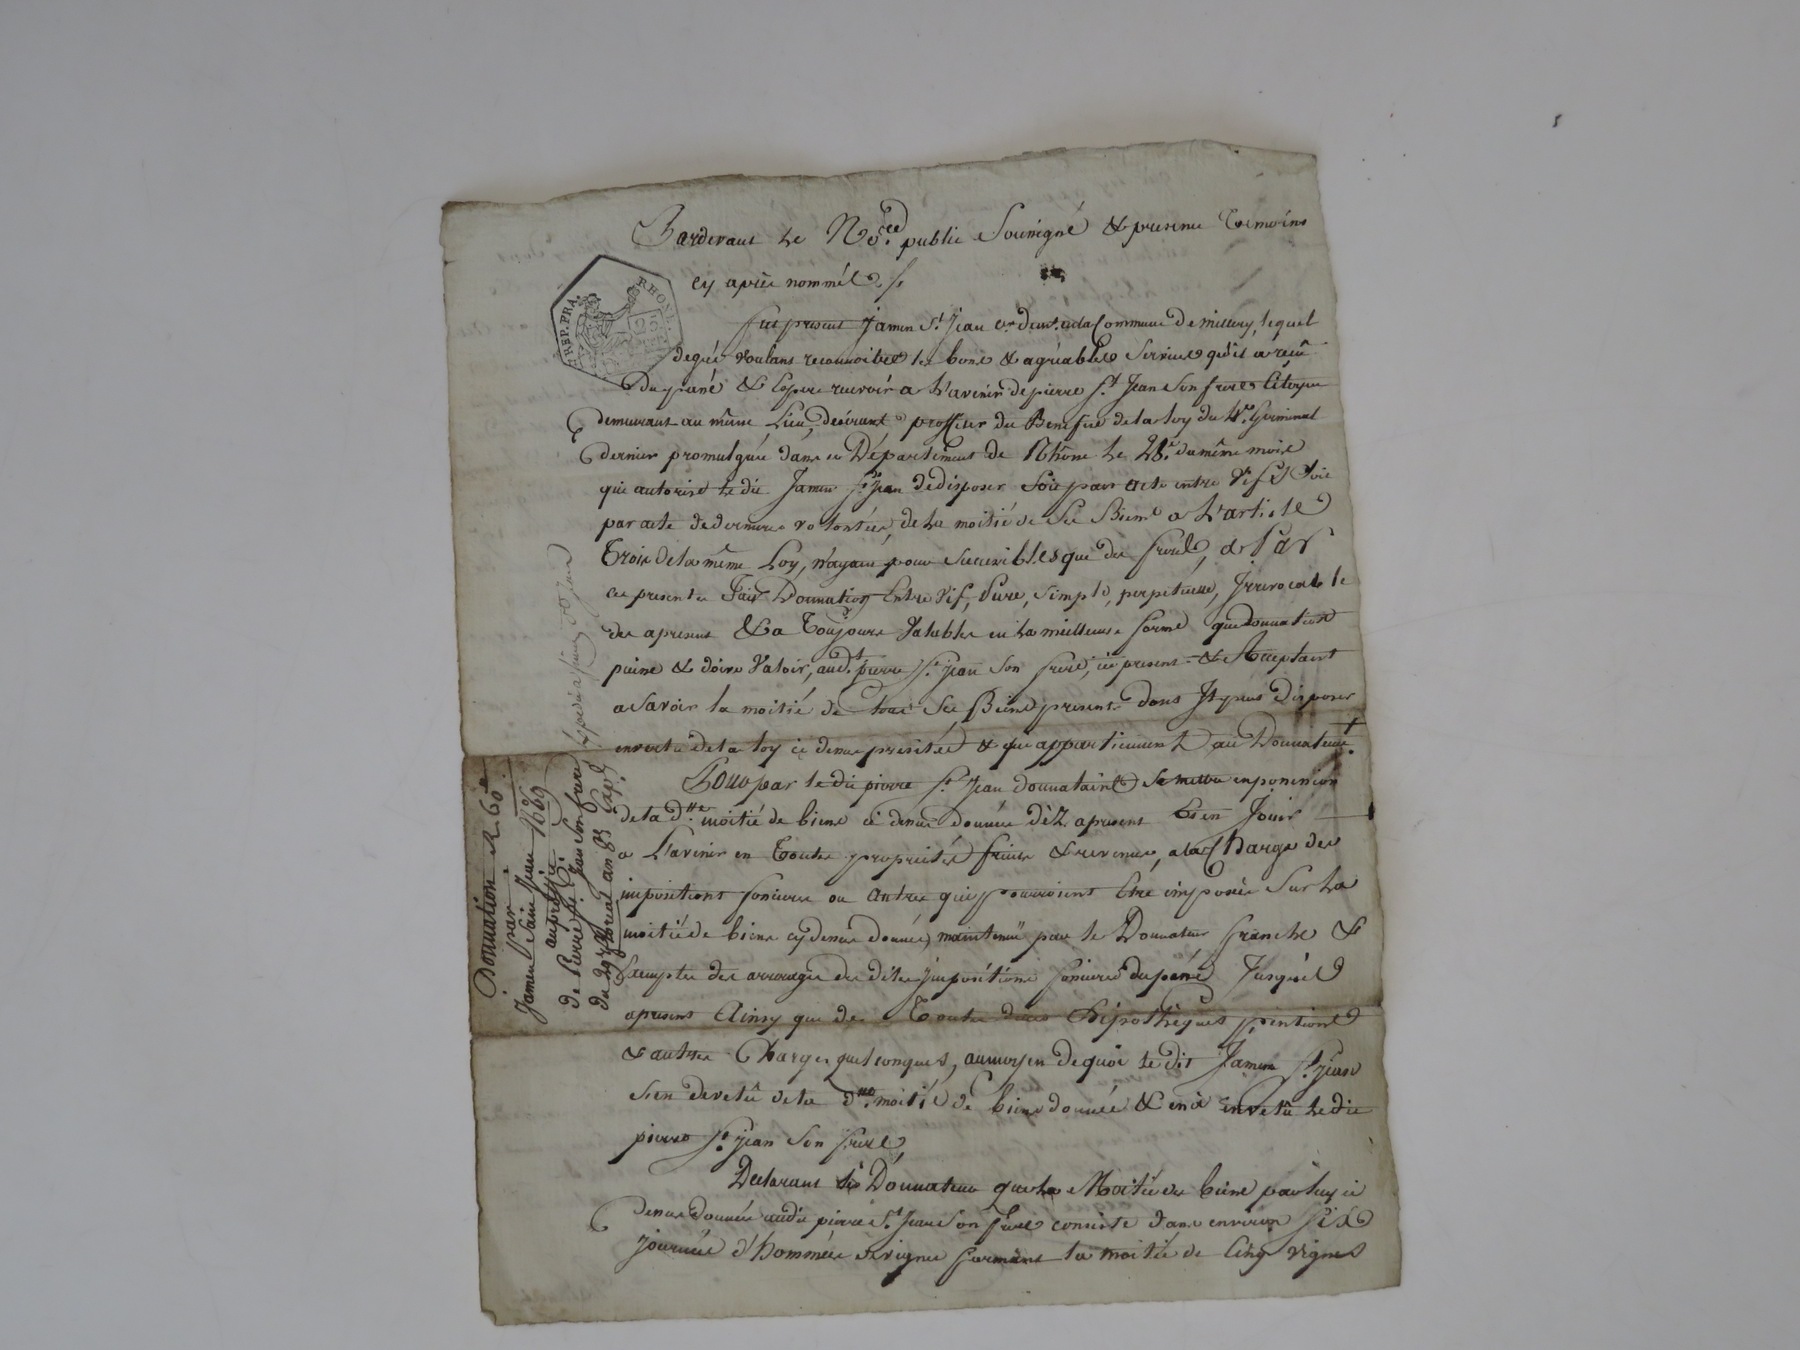 Pardevant Le No.ᵉᵉ public Soussigné & presence Témoins
cy après nommés ./.
REP. FRA.
RHONE
fut present Jamen S.ᵗ Jean Cⁿ dem.ᵗ en la Commune de millery, lequel
de gré voulant reconnoitre les bons & agréables Services qu'il a reçu
du passé & Espere recevoir a L'avenir de pierre S.ᵗ Jean Son frere Citoyen
demeurant au même Lieu, desirant proffiter du Benefice de la loy du 4.ᵉ Germinal
dernier promulguée dans ce Département de Rhône Le 28.ᵉ du même mois
qui autorise le dit Jamen S.ᵗ Jean de disposer Soit par acte entre Vifs Soit
par acte de derniere volontée, de La moitié de Ses Biens a L'article
Trois de la même Loy, n'ayant pour Successibles que des freres, de Par
ces presentes Fait Donnation Entre Vif, Pure, simple, perpetuelle, Irrevocable
des apresent & a Toujours Valable en La meilleure forme que donnation
puisse & doive Valoir, aud.ᵗ pierre S.ᵗ Jean Son frere, ici present & Acceptant
a Savoir la moitié de tous Ses Biens presents dont Il peut disposer
en vertu de la loy ci dessus presitée & qui appartiennent au Donnateur. †
Pour par le dit pierre S.ᵗ Jean donnataire Se mettre en possession
de la d.ᵗᵉ moitié de biens ci dessus donnée dèz apresent Et en Jouir
a L'avenir en Toutes proprietés fruits & revenus, a la Charge des
impositions foncieres ou autres qui pourroient Etre imposée Sur La
moitié de biens cy dessus donnée, maintenüe par le Donnateur franche &
Exempte des arrerages des dites Impositions foncieres du passé Jusqu'à
apresent Ainsy que de Toutes dettes Hipothèques pentions
& autres Charges quelconques, au moyen de quoi le dit Jamen S.ᵗ Jean
S'en devetû de la d.ᵗᵉ moitié de biens donnée & en a investû Le dit
pierre S.ᵗ Jean Son frere,
Declarant le Donnateur que La Moitié des biens par luy ci
dessus donnée audit pierre S.ᵗ Jean Son frere consiste dans environ Six
Journées d'hommées de vignes formant la moitié de Cinq vignes
Donnation R 60
par
Jamen Saint Jean 1669
au proffit
de Pierre S.ᵗ Jean Son frere
du 29 floreal an 8